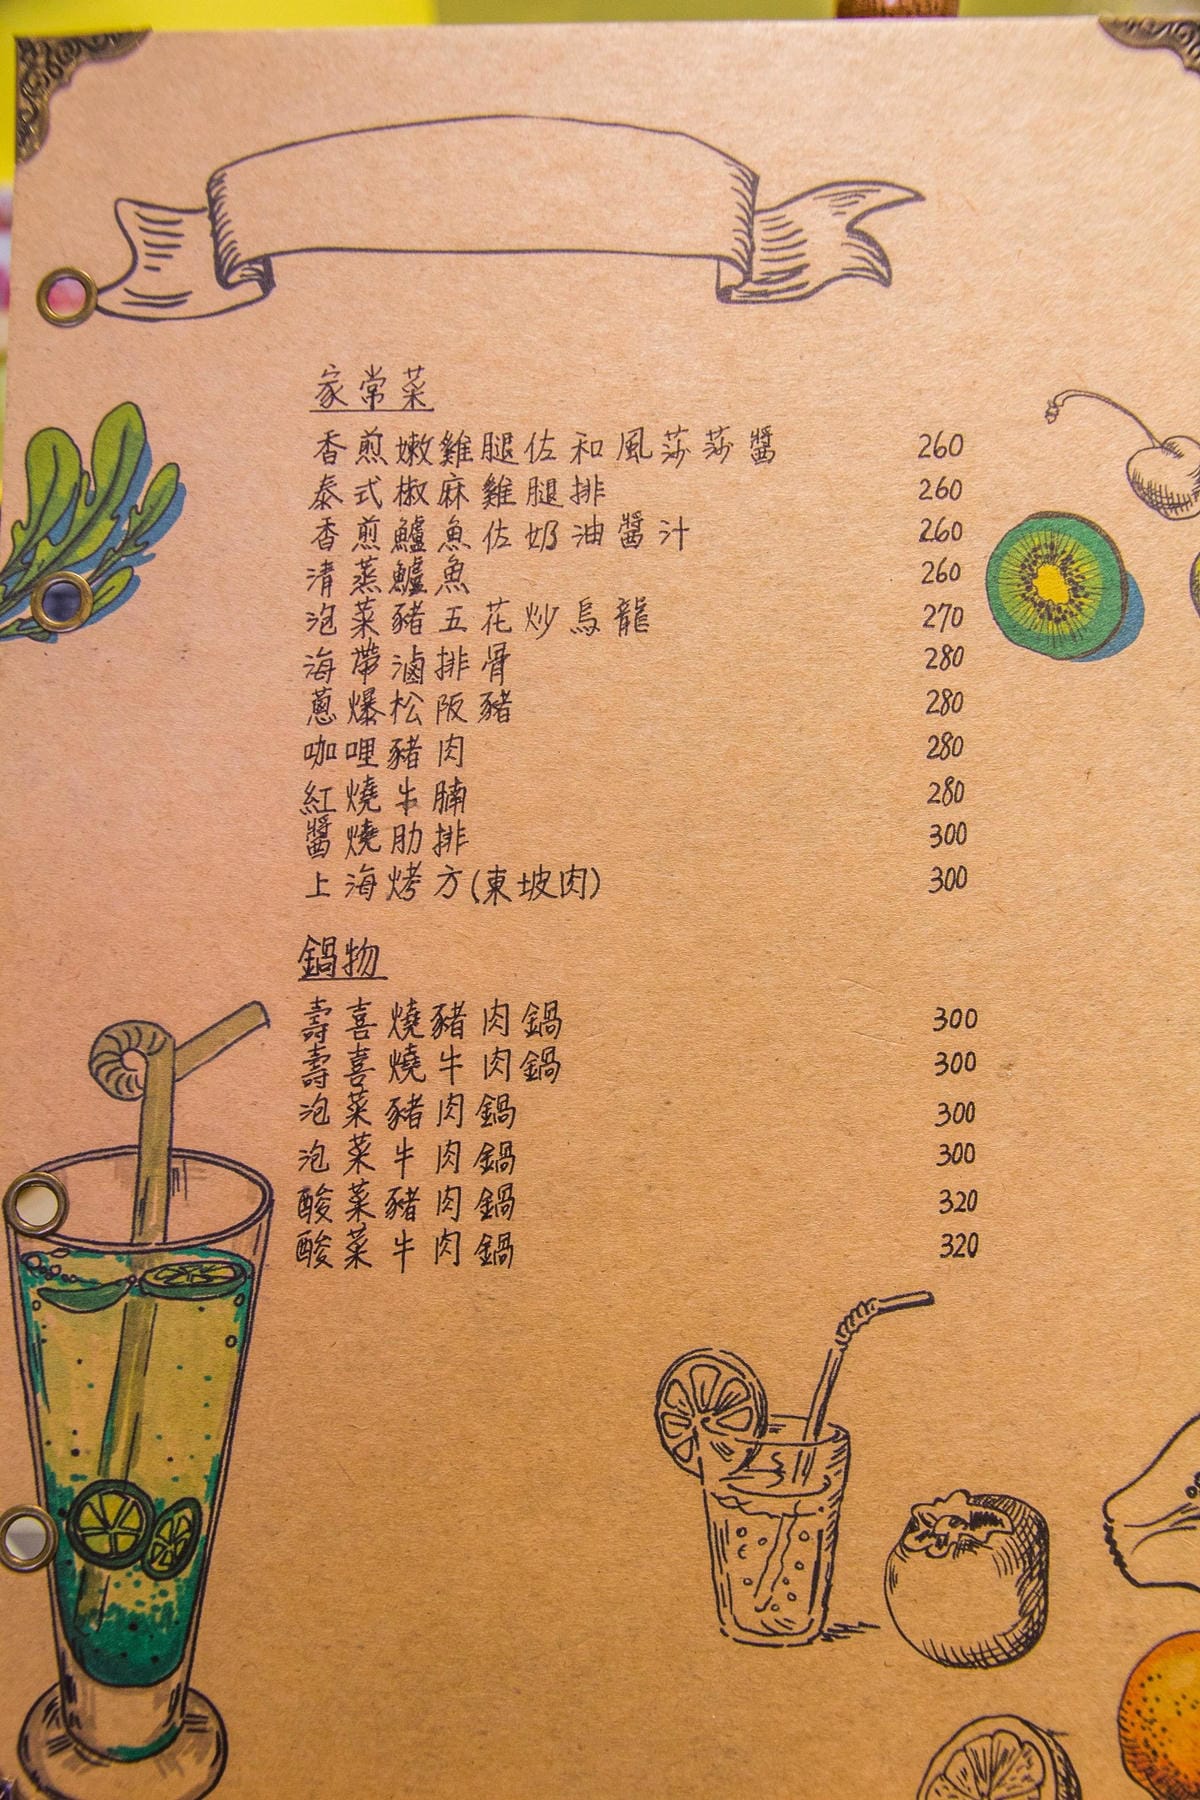 家常菜
香煎嫩雞腿佐和風莎莎醬 260
泰式椒麻雞腿排 260
香煎鱸魚佐奶油醬汁 260
清蒸鱸魚 260
泡菜豬五花炒烏龍 270
海帶滷排骨 280
蔥爆松阪豬 280
咖哩豬肉 280
紅燒牛腩 280
醬燒肋排 300
上海烤方(東坡肉) 300
鍋物
壽喜燒豬肉鍋 300
壽喜燒牛肉鍋 300
泡菜豬肉鍋 300
泡菜牛肉鍋 300
酸菜豬肉鍋 320
酸菜牛肉鍋 320